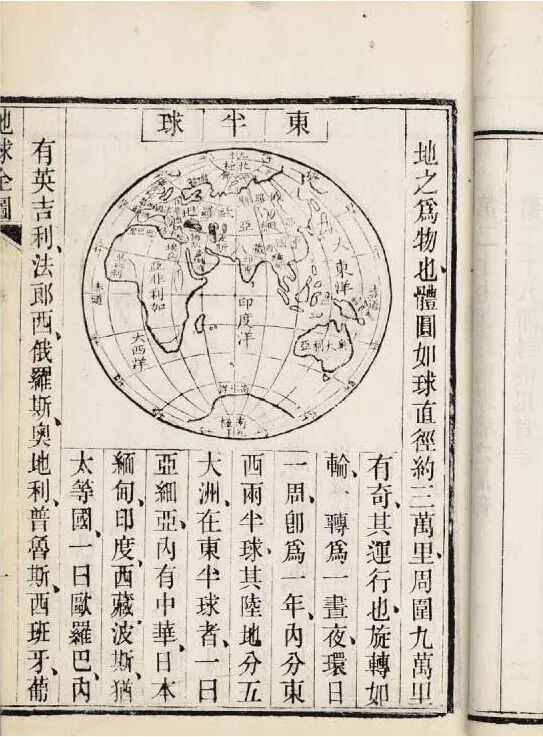 地之爲物也、體圓如球直徑約三萬里周圍九萬里
東半球
大東洋
赤道
奧大利亞
印度洋
亞非利加
大西洋
赤道
有奇其運行也、旋轉如
輪、一轉爲一晝夜環日
一周、卽爲一年內分東
西兩半球、其陸地分五
大洲、在東半球者、一曰
亞細亞、內有中華、日本
緬甸、印度、西藏、波斯、猶
太等國、一曰歐羅巴、內
有英吉利、法郎西、俄羅斯、奧地利、普魯斯、西班牙、葡
地球全圖